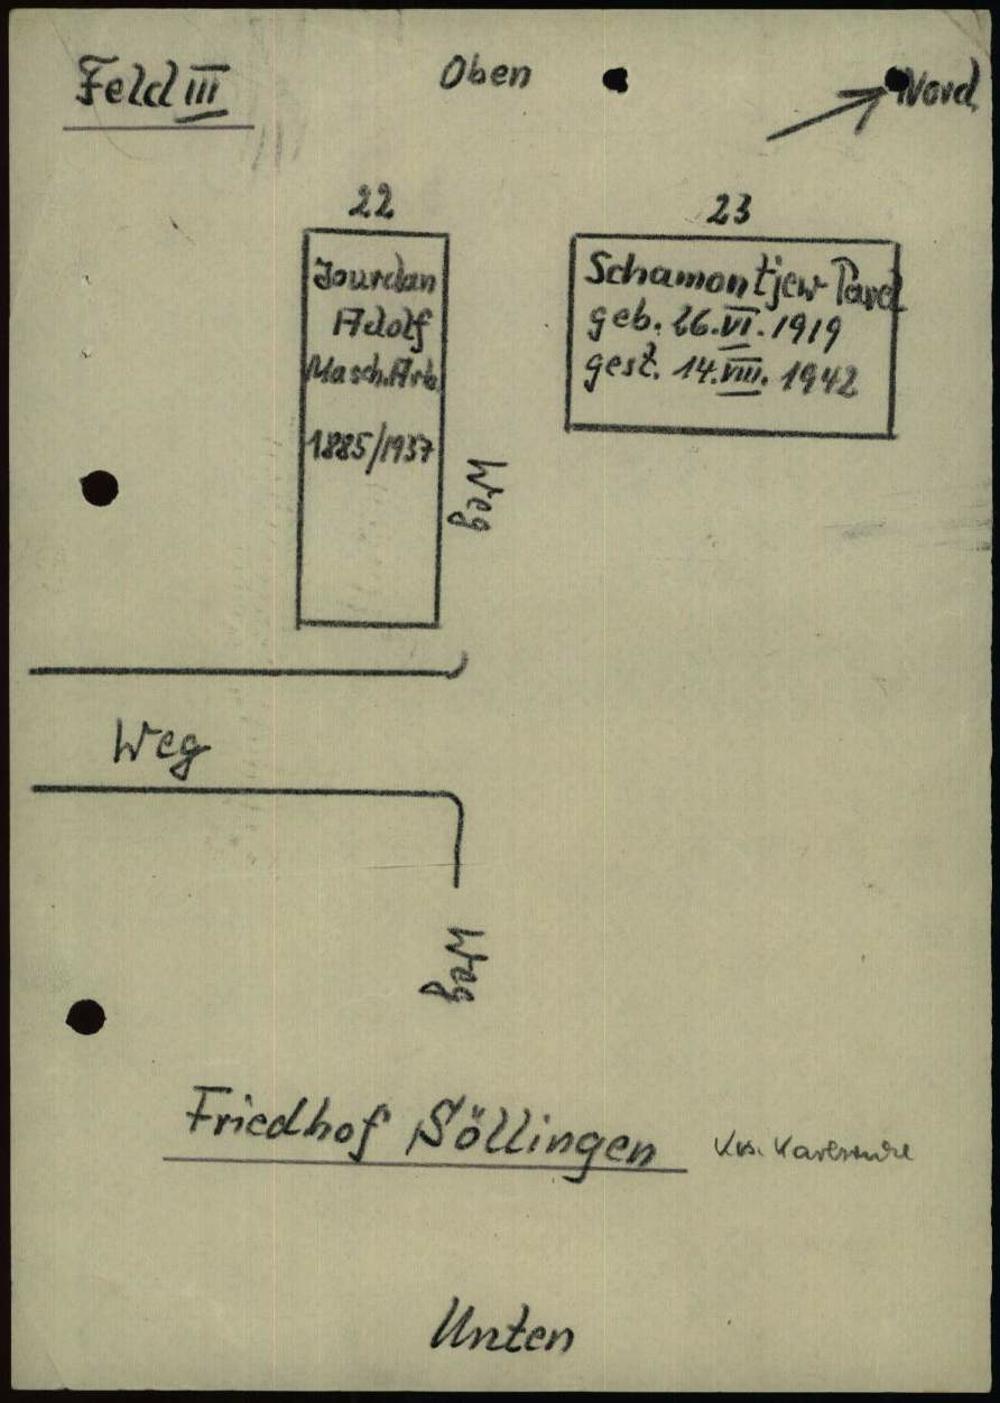 Feld III
Oben
Nord
22
23
Jourdan
Adolf
Masch.Arb.
1885/1937
Schamontjew Pavel
geb. 26.VI.1919
gest. 14.VIII.1942
Weg
Weg
Weg
Friedhof Söllingen
Krs. Karlsruhe
Unten